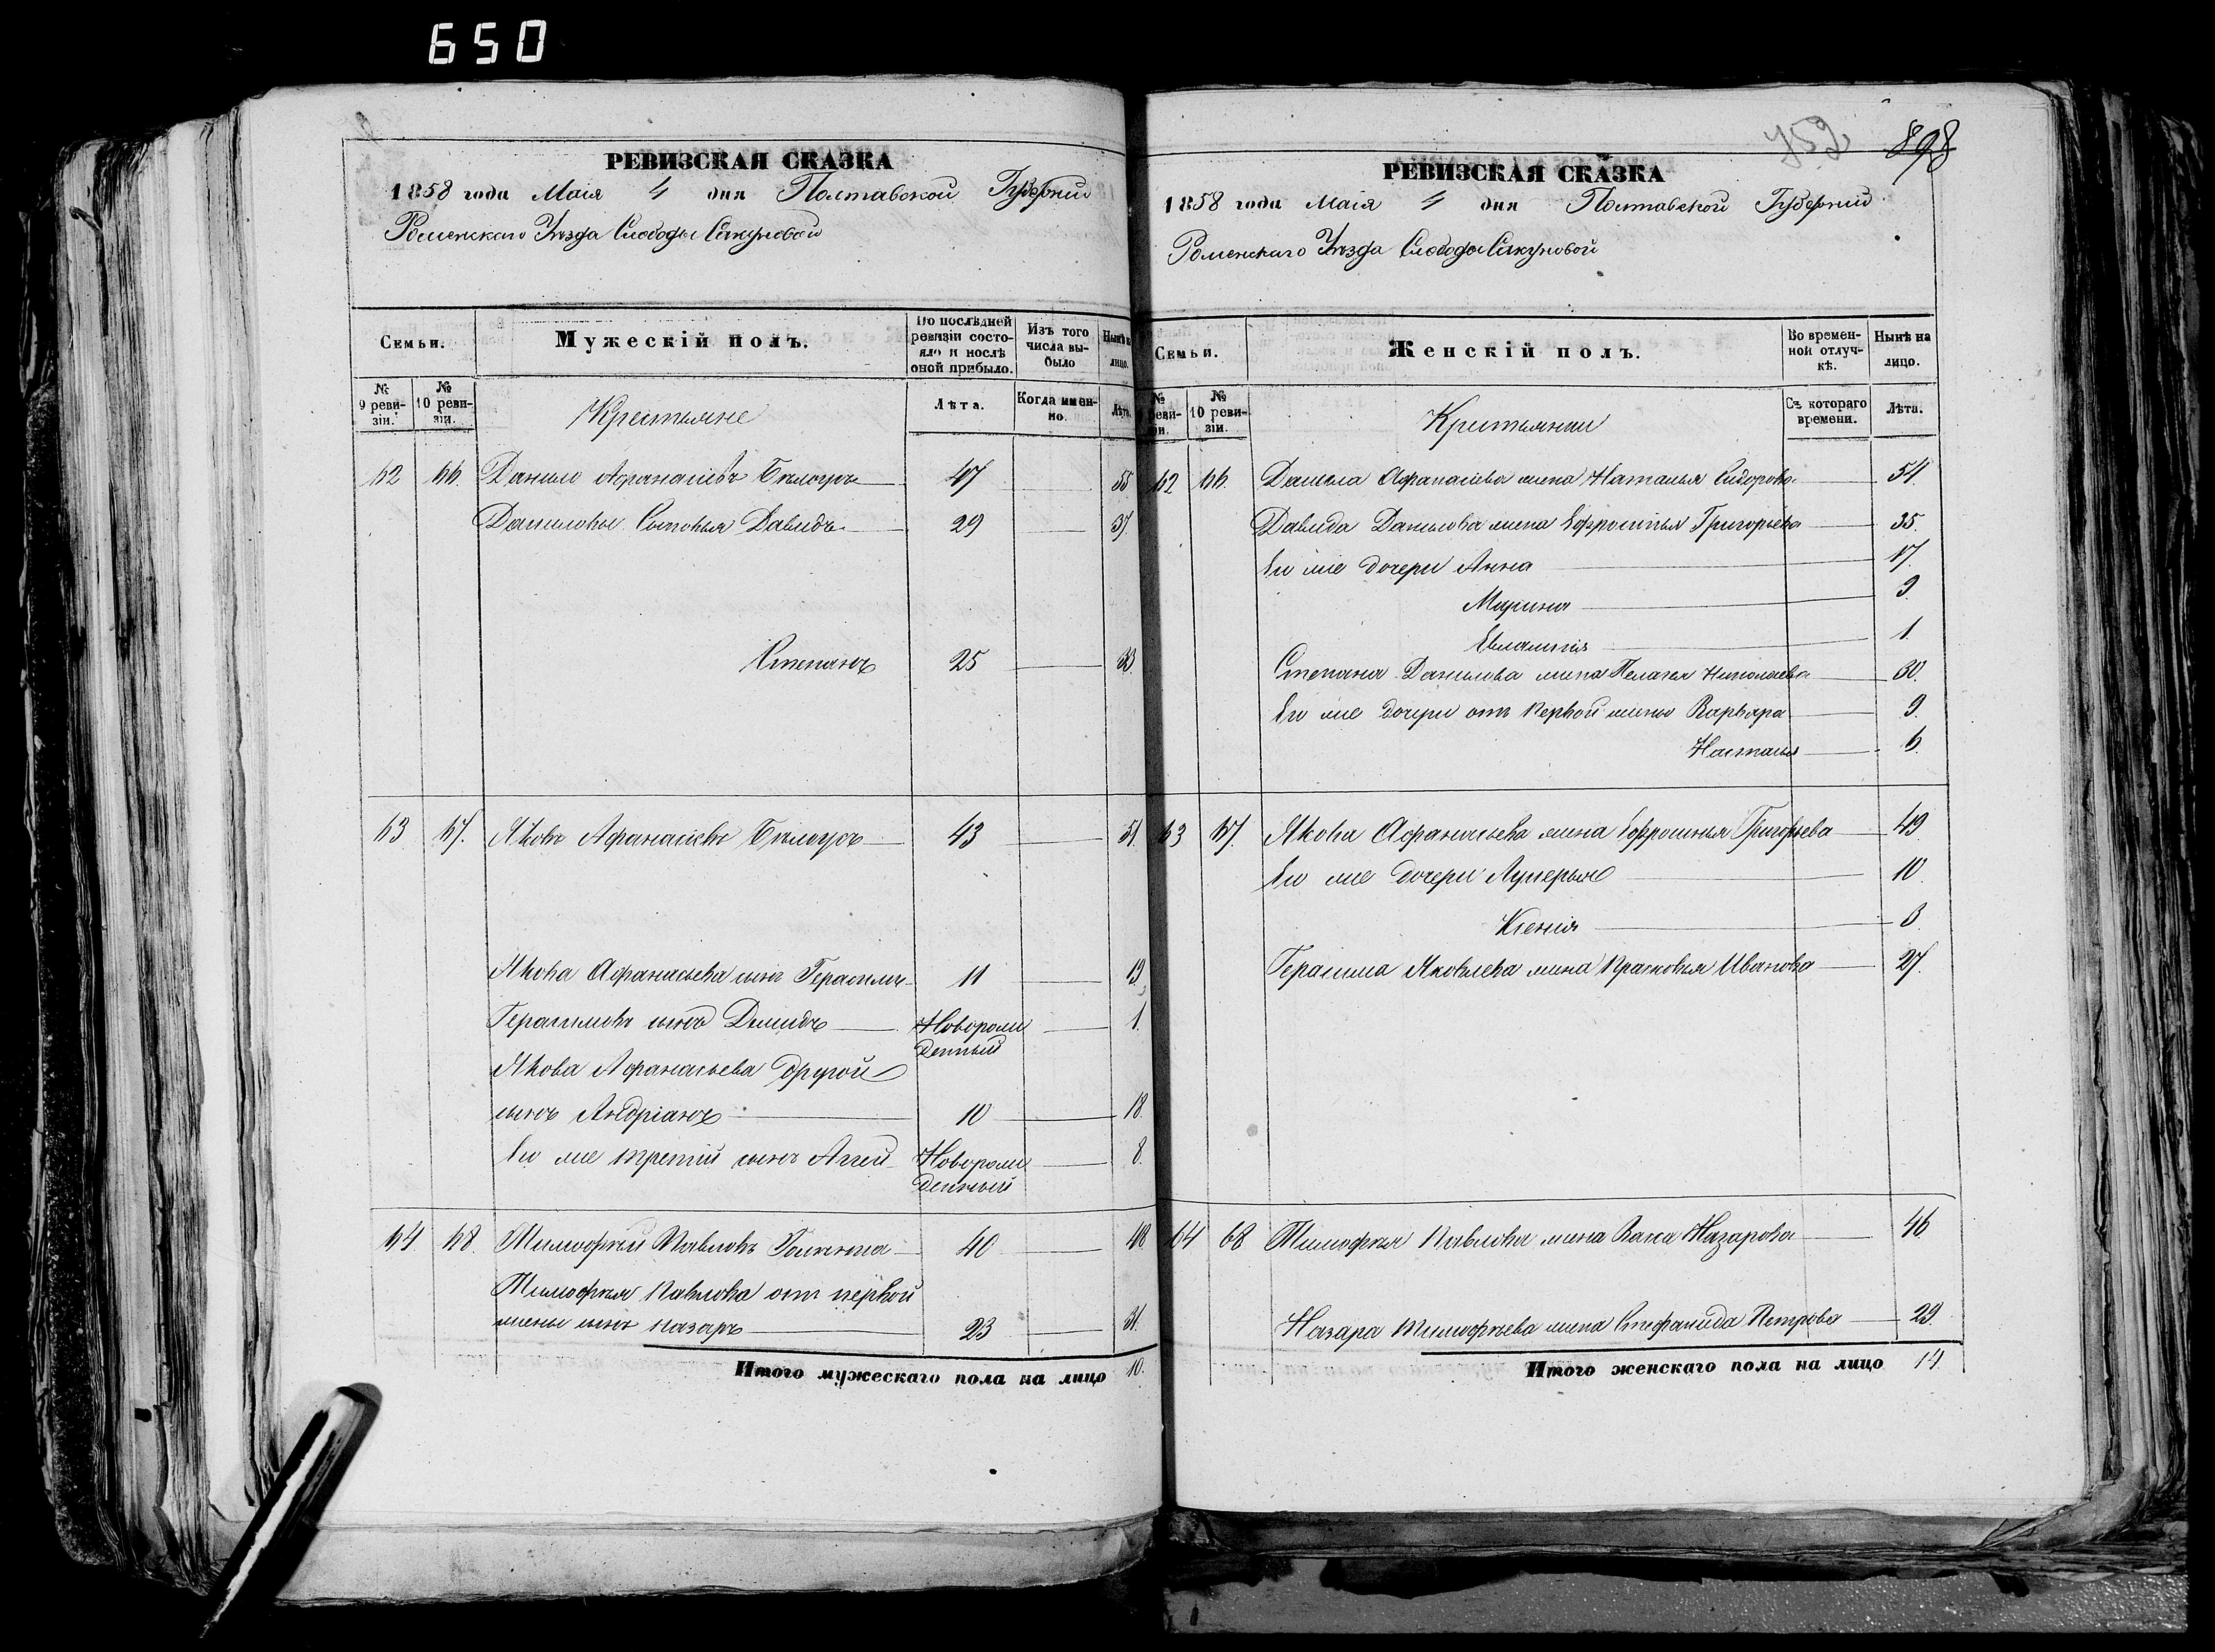 650
РЕВИЗСКАЯ СКАЗКА
1858 года Маія 4 дня Полтавской Губерніи
Роменскаго Уѣзда Слободы
Семьи.
Мужескій полъ.
По послѣдней ревизіи состояло и послѣ оной прибыло.
Изъ того числа выбыло
Нынѣ на лицо.
№ 9 ревизіи.
№ 10 ревизіи.
Крестьяне
Лѣта.
Когда именно.
Лѣта.
62 66. Данило Афанасіевъ Бѣлоусъ 47 55
Даниловы Сыновья Давидъ 29 37.
Степанъ 25 33.
63 67. Яковъ Афанасіевъ Бѣлоусъ 43 51.
Якова Афанасьева сынъ Герасимъ 11 19.
Герасимовъ сынъ Демидъ Новорож 1.
денный
Якова Афанасьева другой
сынъ Андріанъ 10 18
Его же третій сынъ Аггей Новорож 8.
денный
64. 68. Тимофей Павловъ 40 48
Тимофея Павлова от первой
жены сынъ Назаръ 23 31.
Итого мужескаго пола на лицо 10.
752 898
РЕВИЗСКАЯ СКАЗКА
1858 года Маія 4 дня Полтавской Губерніи
Роменскаго Уѣзда Слободы
Семьи.
Женскій полъ.
Во временной отлучкѣ.
Нынѣ на лицо.
№ 9 ревизіи.
№ 10 ревизіи.
Крестьянки
Съ котораго времени.
Лѣта.
62 66. Данила Афанасіева жена Наталья Сидорова 54
Давида Данилова жена Ефросинья Григорьева 35.
Его же дочери Анна 17.
Марина 9.
Евлампія 1.
Степана Данилова жена Пелагея Николаева 30.
Его же дочери отъ первой жены Варвара 9.
Наталья 6.
63 67. Якова Афанасьева жена Ефросинья Григорьева 49
Его же дочери Лукерья 10.
Ксенія 3
Герасима Яковлева жена Прасковья Иванова 27.
64 68 Тимофея Павлова жена Васса Назарова 46
Назара Тимофеева жена Стефанида Петрова 29.
Итого женскаго пола на лицо 14.